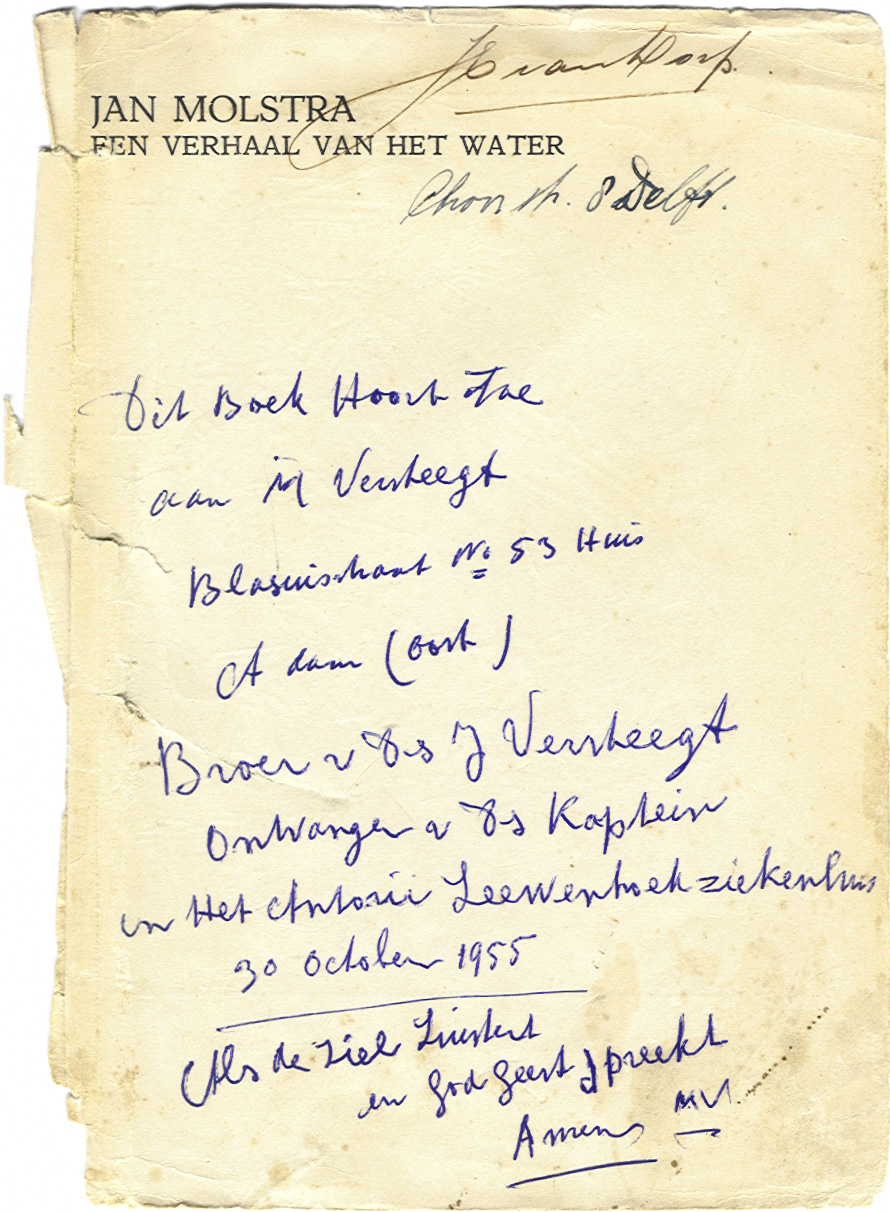 J E van Dorp.
JAN MOLSTRA
EEN VERHAAL VAN HET WATER
8 Delft.
Dit Boek Hoort Toe
aan M Versteegt
Blasiusstraat No 53 Huis
A dam (oost)
Broer v Ds J Versteegt
Ontvangen v Ds Kaptein
in Het Antonii Leewenhoek ziekenhuis
30 October 1955
Als de ziel Luistert
en God Geest Spreekt
Amen MV